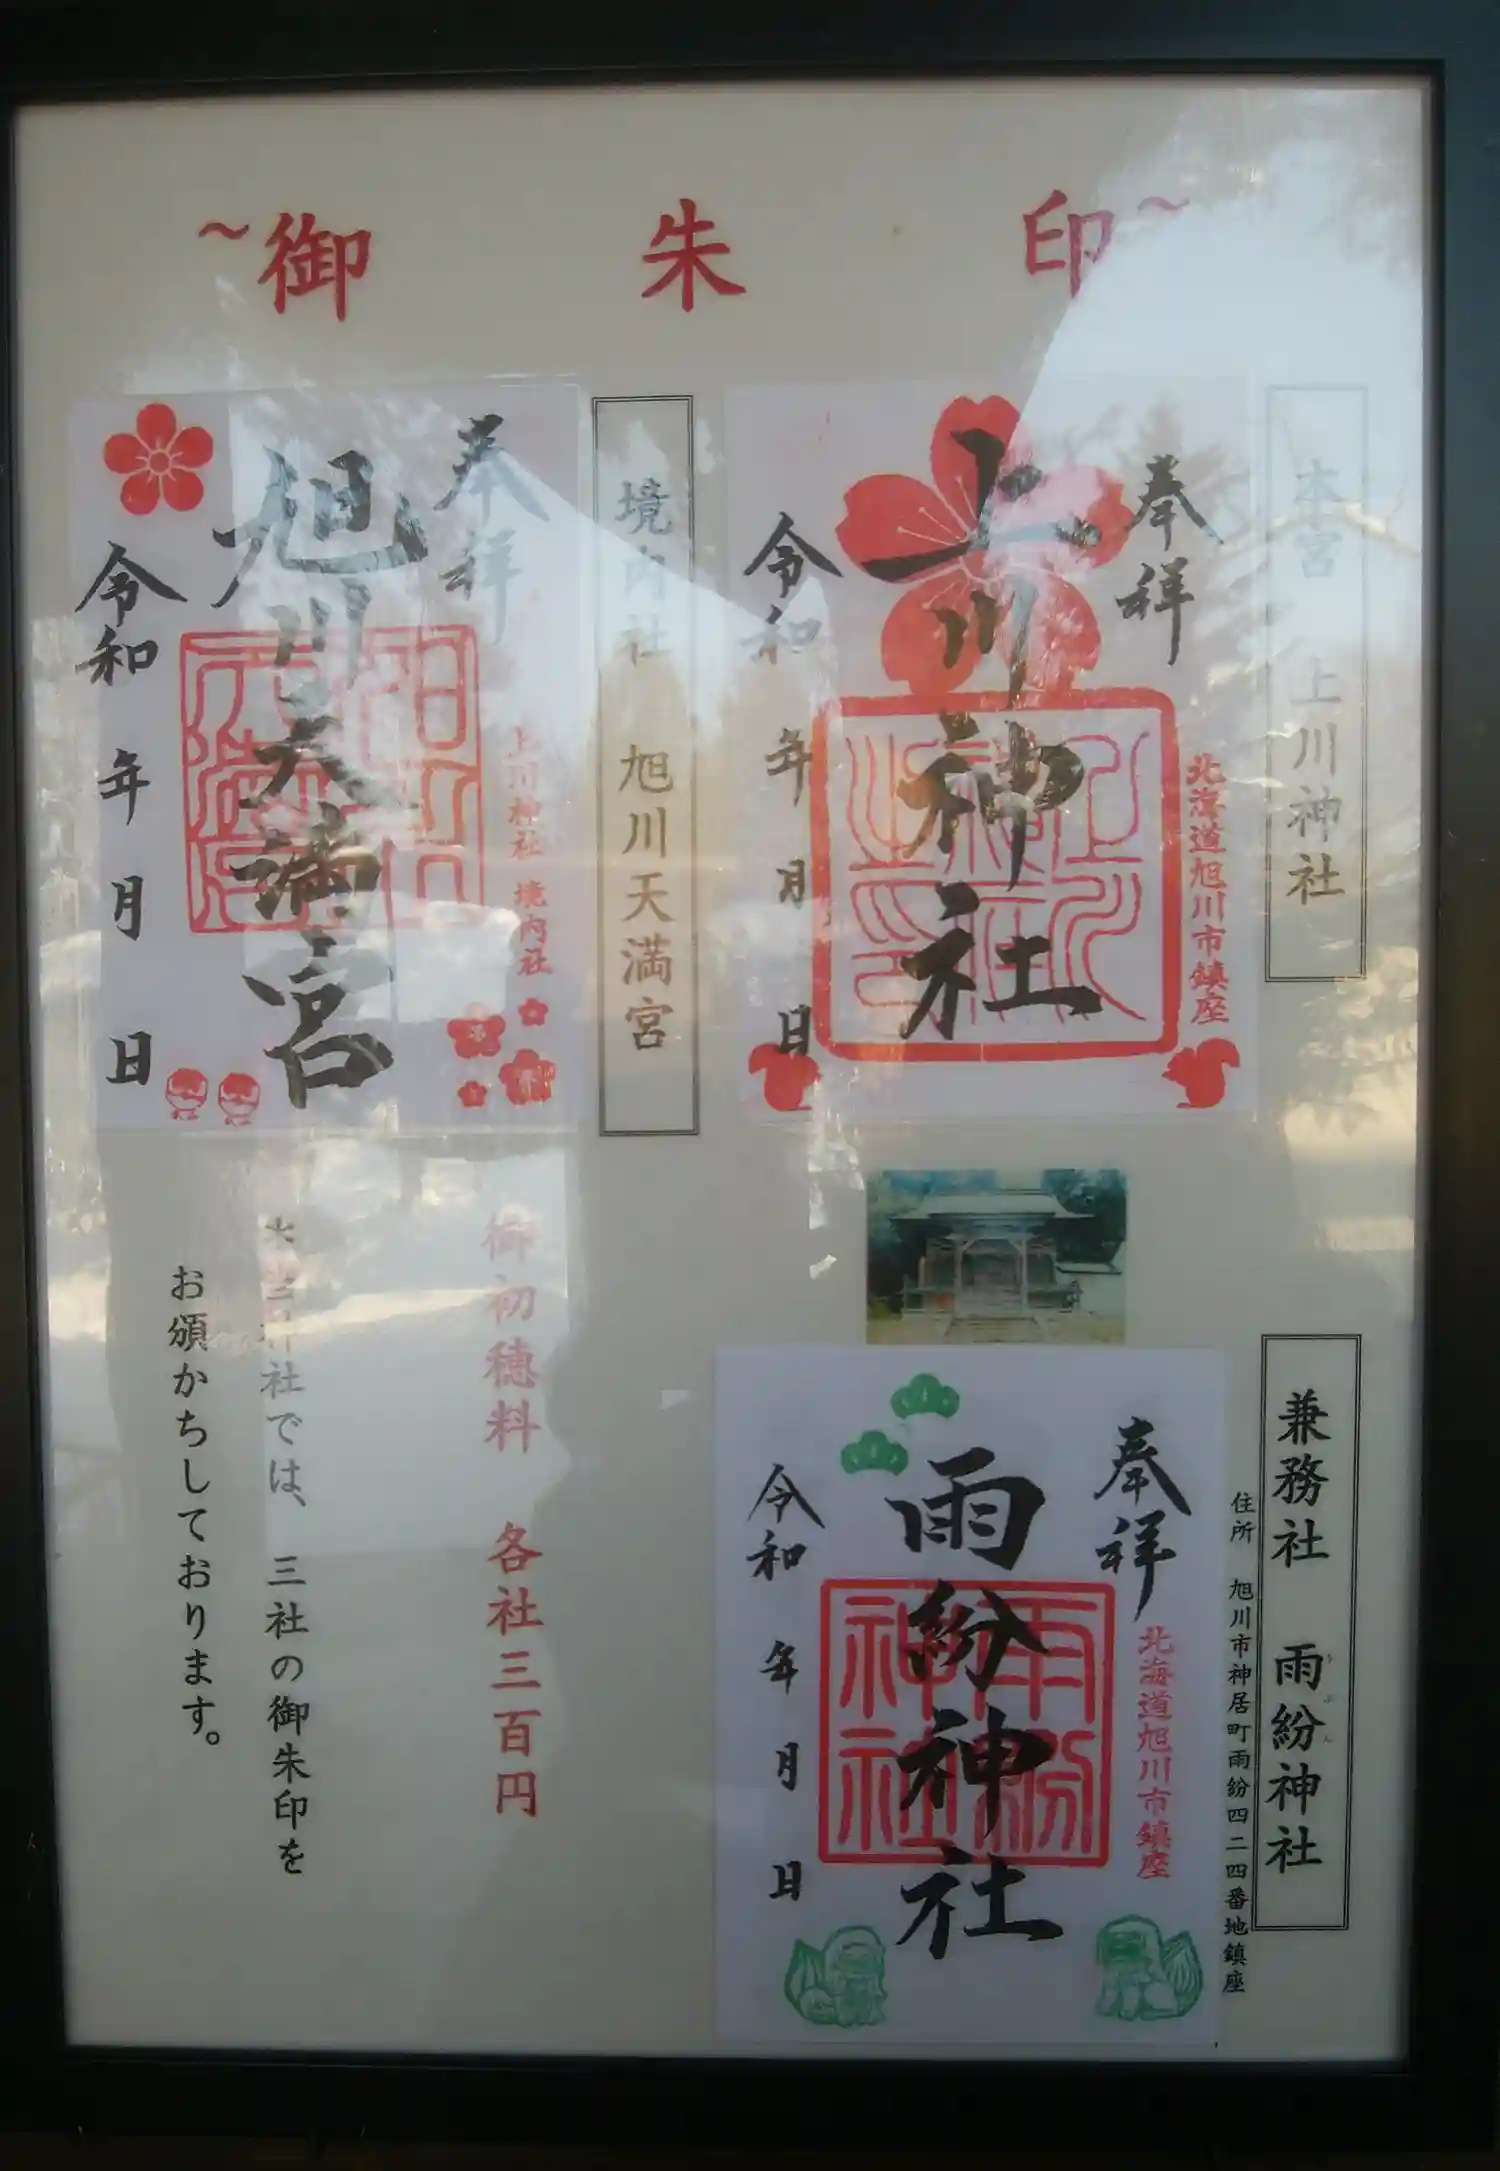 ~御朱印~
本宮 上川神社
奉祥
北海道旭川市鎮座
上川神社
令和 年 月 日
境内社 旭川天満宮
奉祥
上川神社 境内社
旭川天満宮
令和 年 月 日
兼務社 雨紛神社
うぶん
住所 旭川市神居町雨紛四二四番地鎮座
奉祥
北海道旭川市鎮座
雨紛神社
令和 年 月 日
御初穂料 各社三百円
神社では、三社の御朱印を
お頒かちしております。